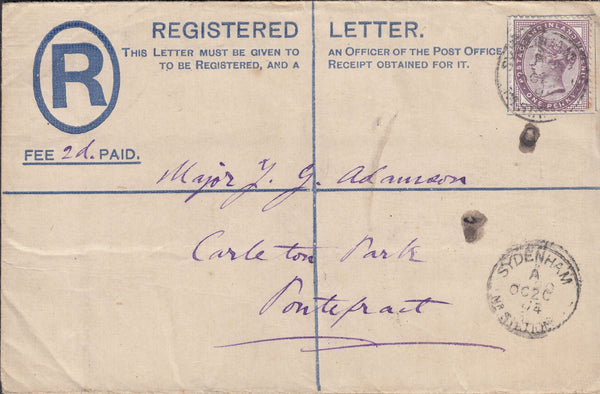 REGISTERED LETTER.
THIS LETTER MUST BE GIVEN TO AN OFFICER OF THE POST OFFICE
TO BE REGISTERED, AND A RECEIPT OBTAINED FOR IT.
R
FEE 2d. PAID.
POSTAGE AND INLAND REVENUE
ONE PENNY
Major J. G. Adamson
Carleton Park
Pontefract
SYDENHAM
A
OC 26
94
STATION